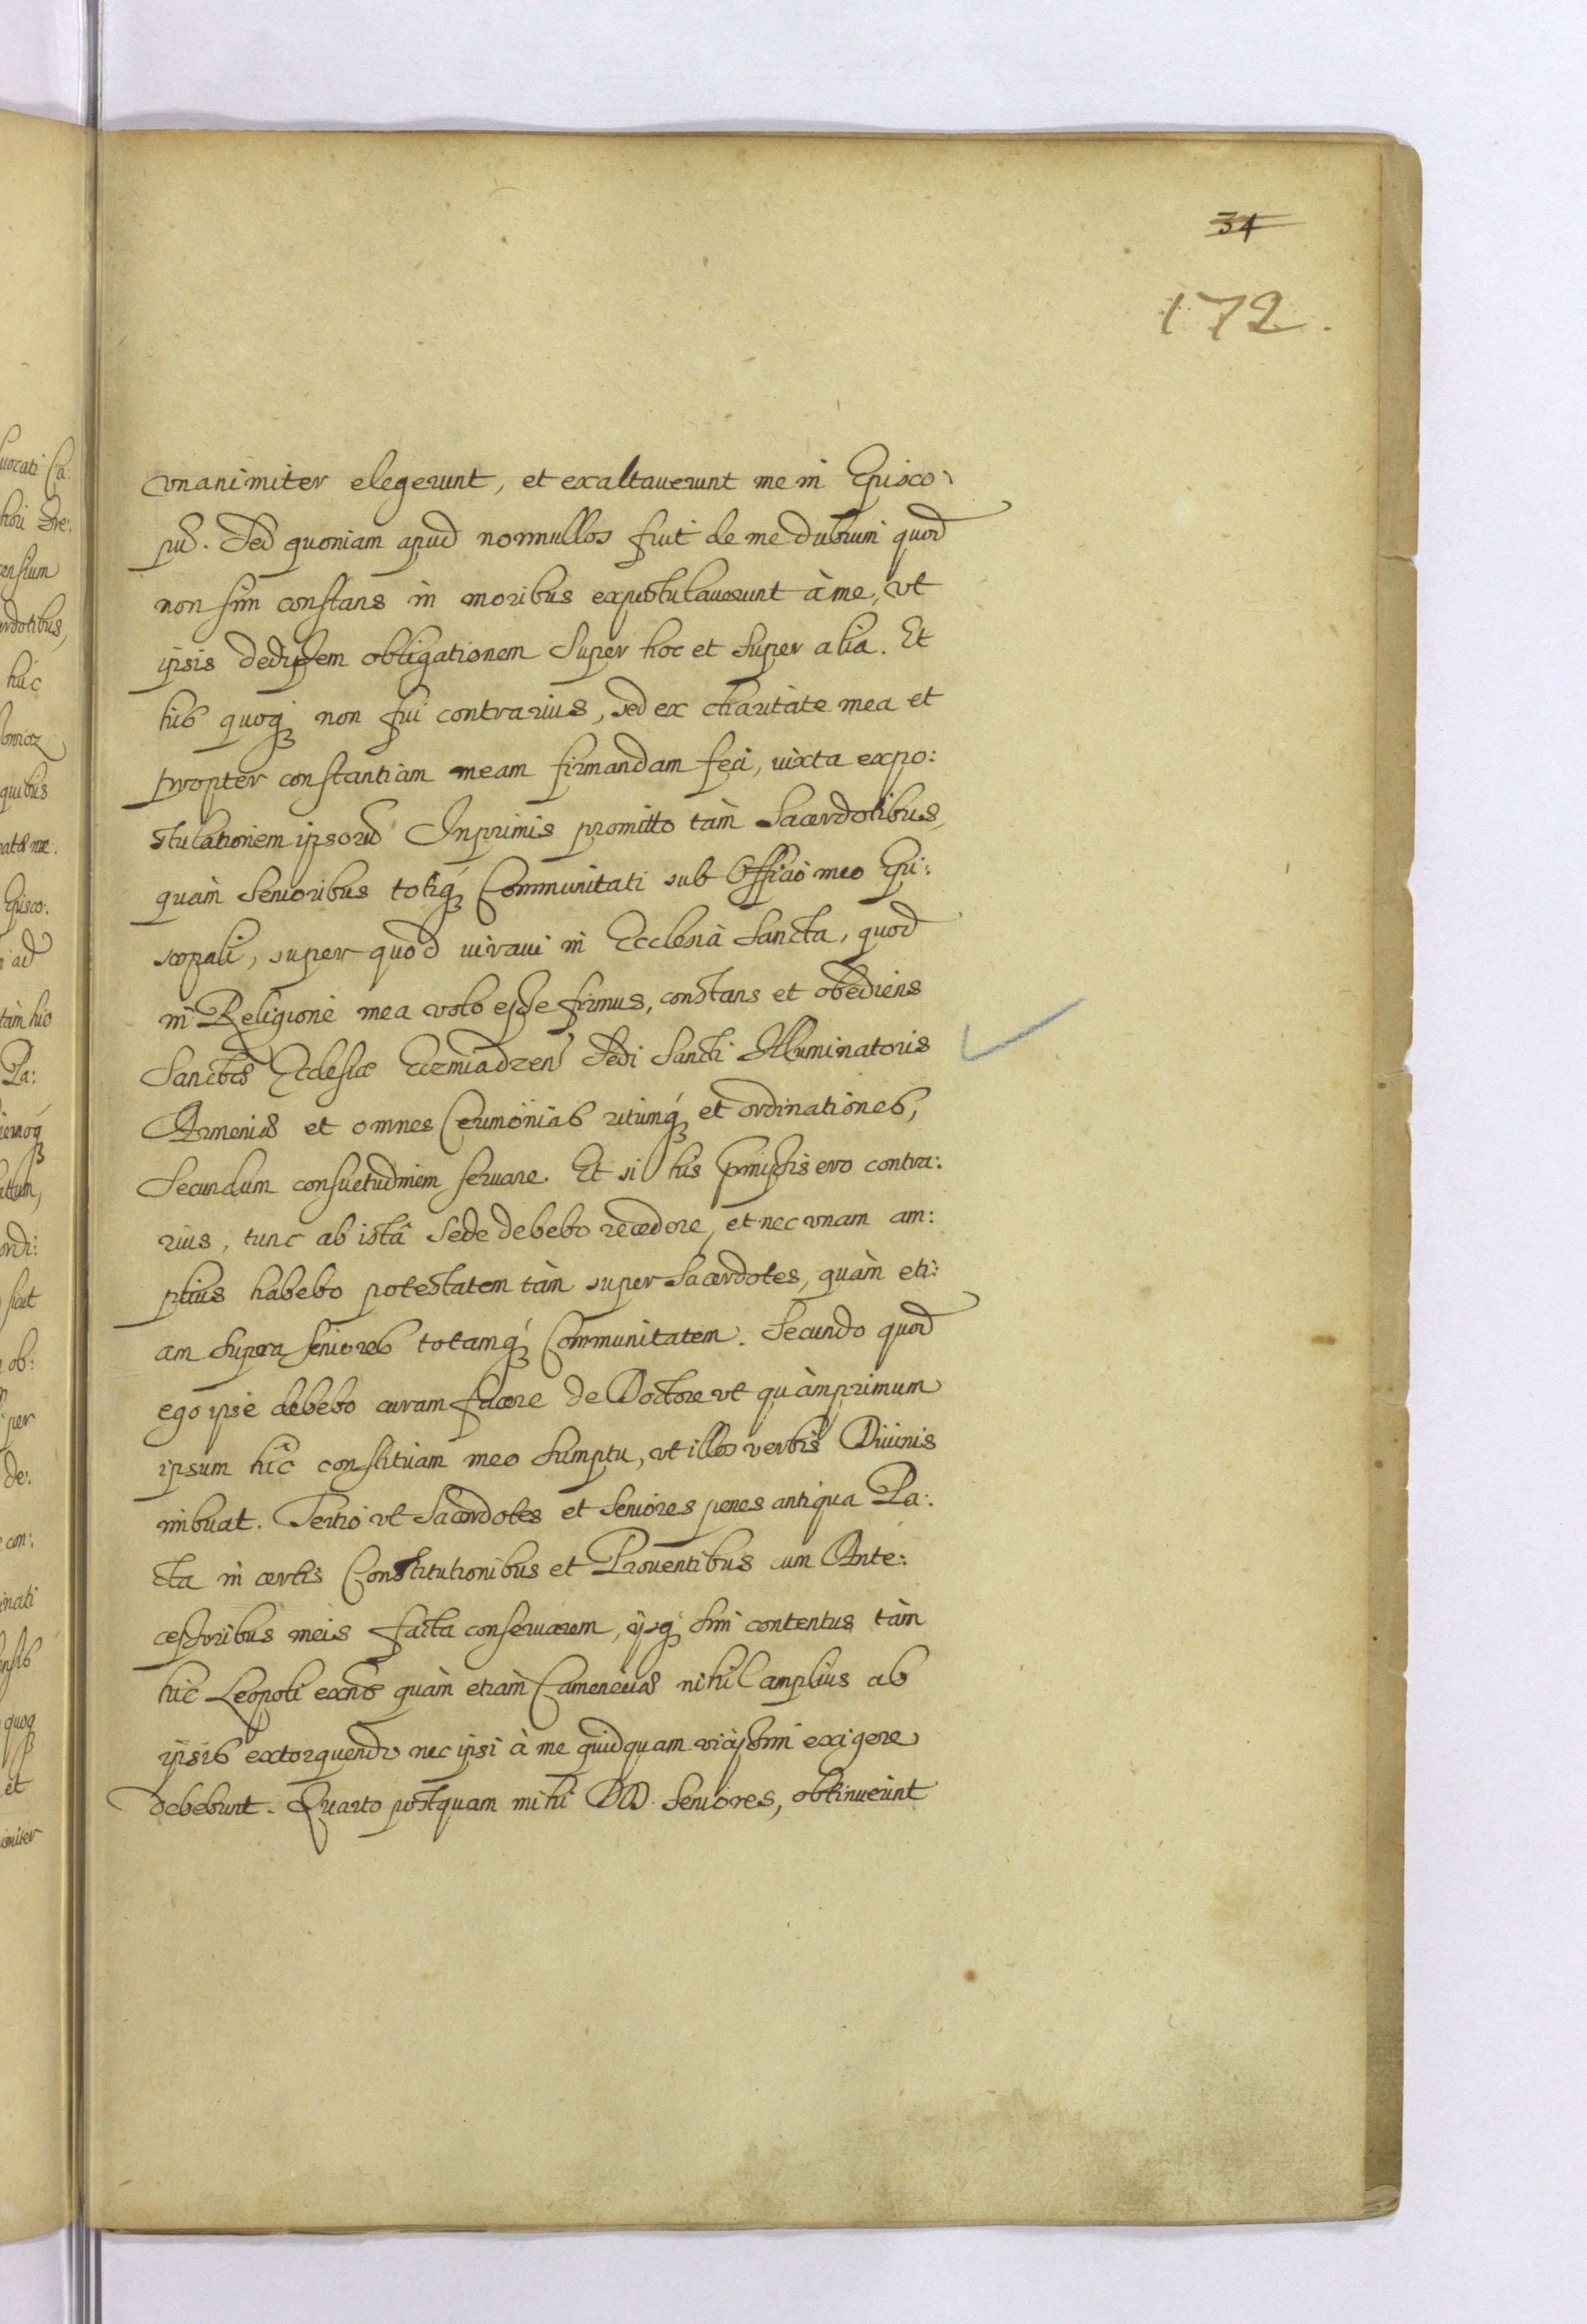 34
172.
vnanimiter elegerunt, et exaltauerunt me in Episco:
pū. Sed quoniam apud nonnullos fuit de me dubium quod
non sim constans in moribus expostulauerunt à me, vt
ipsis dedissem obligationem super hoc et super alia. Et
his quoq; non fui contrarius, sed ex charitate mea et
propter constantiam meam firmandam feci, iuxta expo:
stulationem ipsorū Inprimis promitto tàm Sacerdotibus,
quàm Senioribus totiq; Communitati sub Officio meo Epi:
scopali, super quod iuraui in Ecclesià Sancta, quod
in Religione mea volo esse firmus, constans et obediens
Sanctæ Ecclesiæ Eczmiadzen Sedi Sancti Illuminatoris
Armeniæ et omnes Cerimonias ritumq; et ordinationes,
Secundum consuetudinem seruare. Et si his pmissis ero contra:
rius, tunc ab istâ Sede debebo recedere, et nec vnam am:
plius habebo potestatem tàm super Sacerdotes, quàm eti:
am supra seniores totamq; Communitatem. Secundo quod
ego ipse debebo curam facere de Doctore vt quàmprimum
ipsum hîc constituam meo Sumptu, vt illos verbis Diuinis
imbuat. Tertio vt Sacerdotes et Seniores penes antiqua Pa:
cta in certis Constitutionibus et Prouentibus cum Ante:
cessoribus meis facta conseruarem, ijsq; sim contentus tàm
hic Leopoli quàm etiàm Cameneciæ nihil amplius ab
ipsis extorquendo nec ipsi à me quidquam vicissim exigere
debebunt. Quarto postquam mihi DD. Seniores, obtinuerint